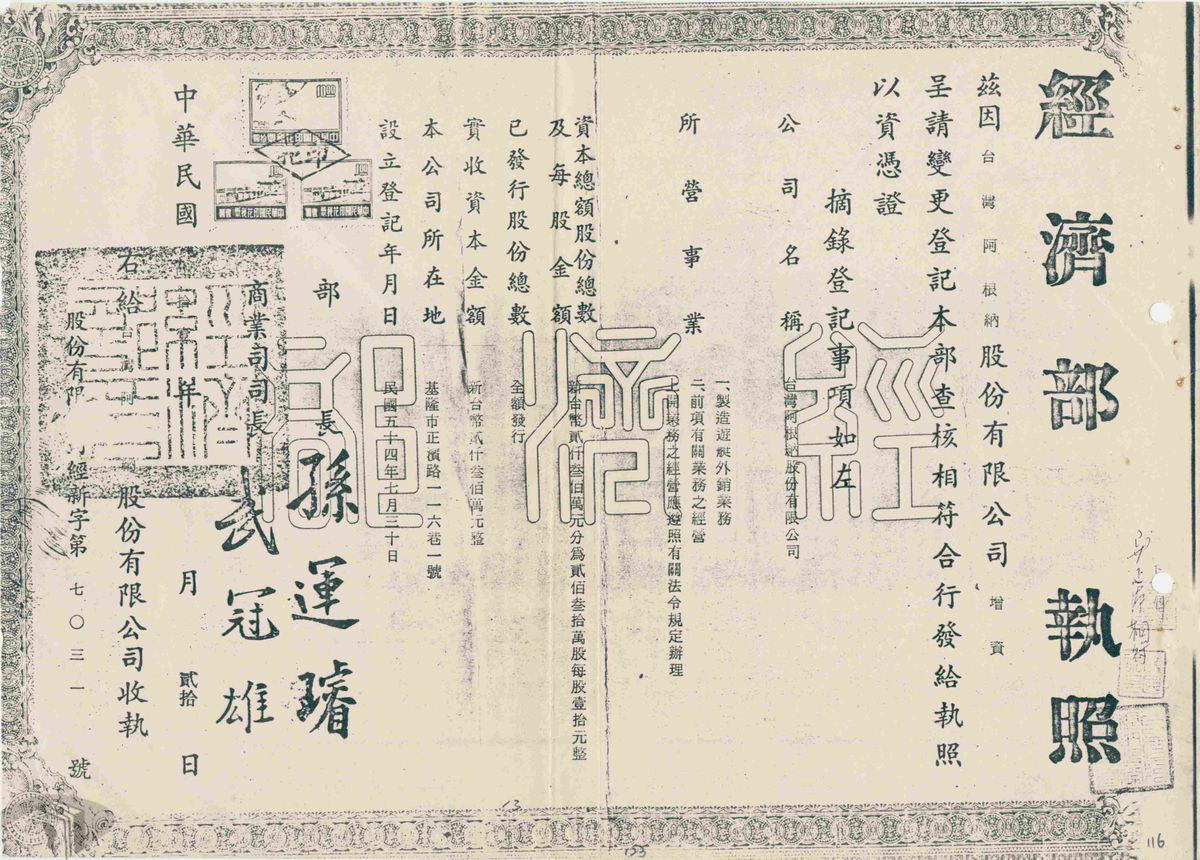 經濟部執照
茲因台灣阿根納股份有限公司增資
呈請變更登記本部查核相符合行發給執照
以資憑證
摘錄登記事項如左
公司名稱
台灣阿根納股份有限公司
所營事業
一、製造遊艇外銷業務
二、前項有關業務之經營
上開業務之經營應遵照有關法令規定辦理
資本總額股份總數
及每股金額
新台幣貳仟叁佰萬元分為貳佰叁拾萬股每股壹拾元整
已發行股份總數
全額發行
實收資本金額
新台幣貳仟叁佰萬元整
本公司所在地
基隆市正濱路一一六巷一號
設立登記年月日
民國五十四年七月三十日
部長 孫運璿
商業司司長 武冠雄
中華民國 年 月 貳拾 日
右給 股份有限公司收執
股份有限 經新字第 七〇三一 號
經濟部
10.00
印花
中華民國印花稅票
116
133
13